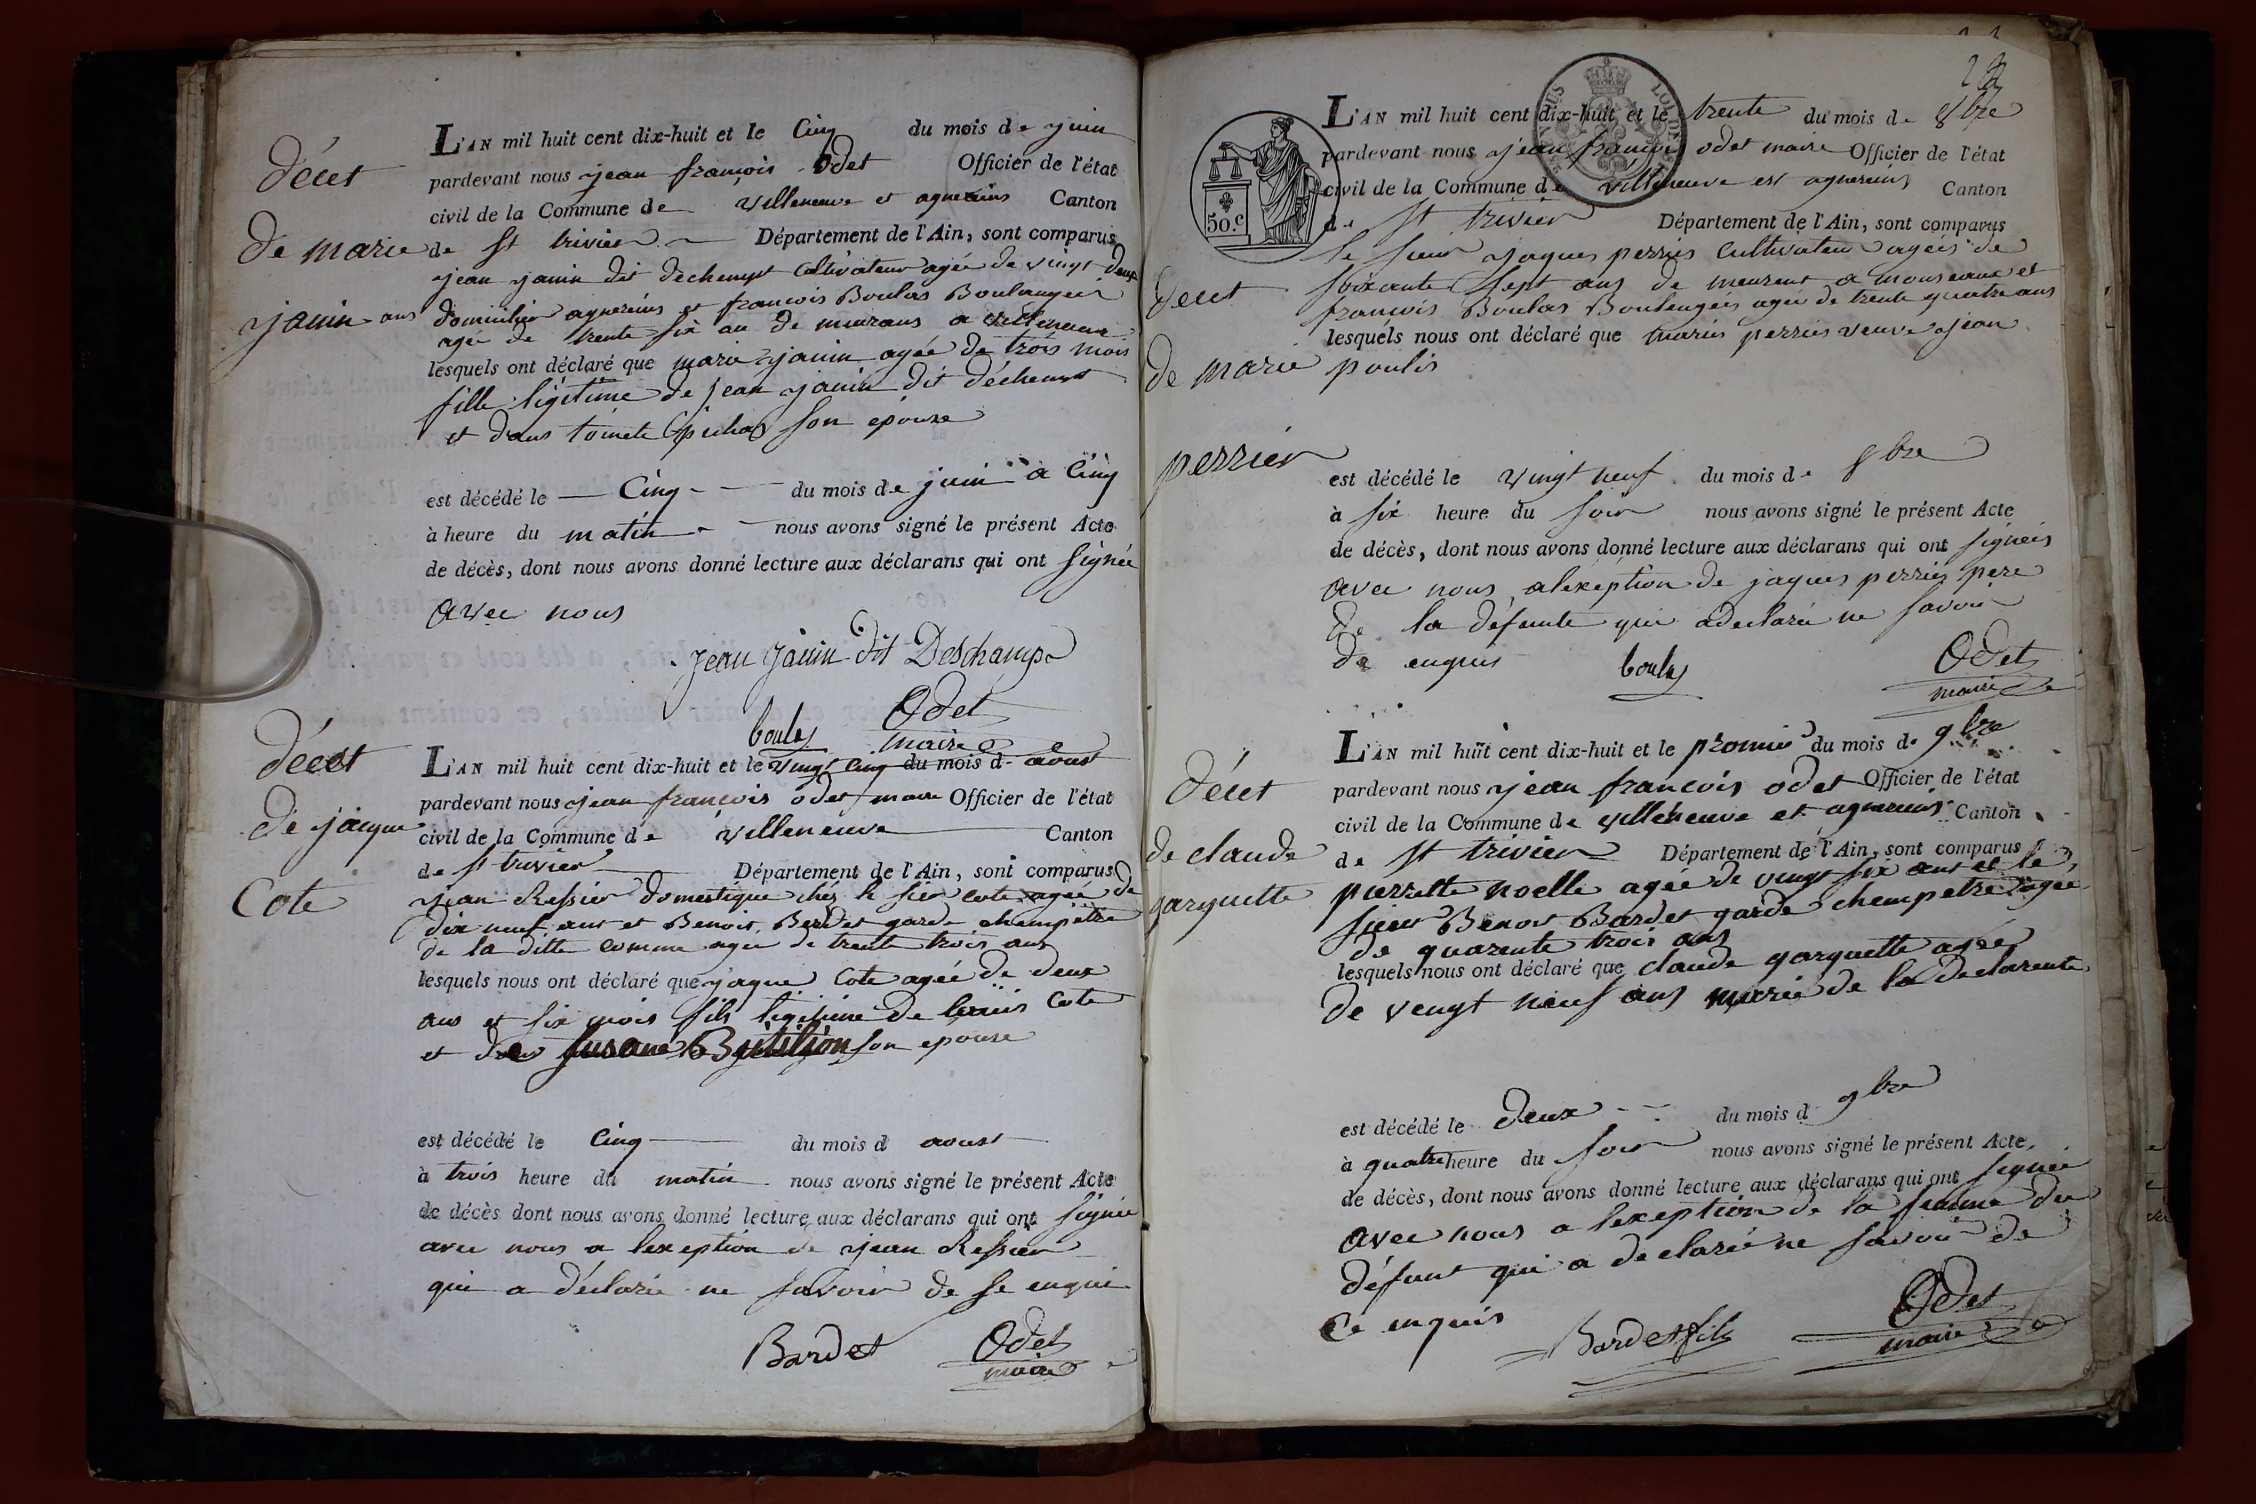 décet
de marie
janin
L'AN mil huit cent dix-huit et le Cinq du mois de juin
pardevant nous jean françois Odet Officier de l'état
civil de la Commune de villeneuve et agnereins Canton
de St trivier Département de l'Ain, sont comparus
jean janin dit dechemps Cultivateur agée de vingt deux
ans domicilier agnereins et francois Boulas Boulangeir
agée de trente six an de murans a villeneuve
lesquels ont déclaré que marie janin agée de trois mois
fille légitime de jean janin dit déchemps
et dans toinete pichas son epouse
est décédé le Cinq du mois de juin a Cinq
à heure du matin nous avons signé le présent Acte
de décès, dont nous avons donné lecture aux déclarans qui ont signée
avec nous
jean janin dit Deschamps
boulas Odet
maire
décet
de jacque
Cote
L'AN mil huit cent dix-huit et le vingt Cinq du mois d aoust
pardevant nous jean francois odet maire Officier de l'état
civil de la Commune de villeneuve Canton
de St trivier Département de l'Ain, sont comparus
jean Ressier domestique chés le sier cote agée de
dix neuf ans et Benoit Berdet garde champètre
de la ditte comme agée de trente trois ans
lesquels nous ont déclaré que jaque Cote agée de deux
ans et six mois fils légitime de louis Cote
et de susane Bitiljon son epouse
est décédé le Cinq du mois d aoust
à trois heure du matin nous avons signé le présent Acte
de décès dont nous avons donné lecture aux déclarans qui ont signée
avec nous a lexeption de jean Ressier
qui a déclarée ne savoir de se enqui
Bardet Odet
maire
22
L'AN mil huit cent dix-huit et le trente du mois de 8bre
pardevant nous jean françois odet maire Officier de l'état
civil de la Commune de villeneuve et agnereins Canton
de St trivier Département de l'Ain, sont comparus
50.c
décet
de marie
perrier
le sieur jaques perriés Cultivateur agéés de
soixante sept ans de meurent a mouseaux et
francois Boulas Boulengéis agée de trente quatre ans
lesquels nous ont déclaré que mariés perriés veuve jean
poulis
est décédé le vingt neuf du mois de 8bre
à six heure du soir nous avons signé le présent Acte
de décès, dont nous avons donné lecture aux déclarans qui ont signéés
avec nous alexeption de jaques perriés pere
de la défunte qui adeclarée ne savoir
de enquis boulas Odet
maire
décet
de claude
garguette
L'AN mil huit cent dix-huit et le promié du mois de 9bre
pardevant nous jean francois odet Officier de l'état
civil de la Commune de villeneuve et agnereins Canton
de St trivier Département de l'Ain, sont comparus
pierrette noelle agée de vingt six ans et le
sieur Benoit Bardet garde chempetre agée
de quarente trois ans
lesquels nous ont déclaré que claude garguette agée
de vengt neuf ans mariée de la declarente
est décédé le deux du mois d 9bre
à quatre heure du soir nous avons signé le présent Acte
de décès, dont nous avons donné lecture aux déclarans qui ont signée
avec nous a lexeption de la femme du
défunt qui a declarée ne savoir de
Ce enquis
Bardet fils Odet
maire